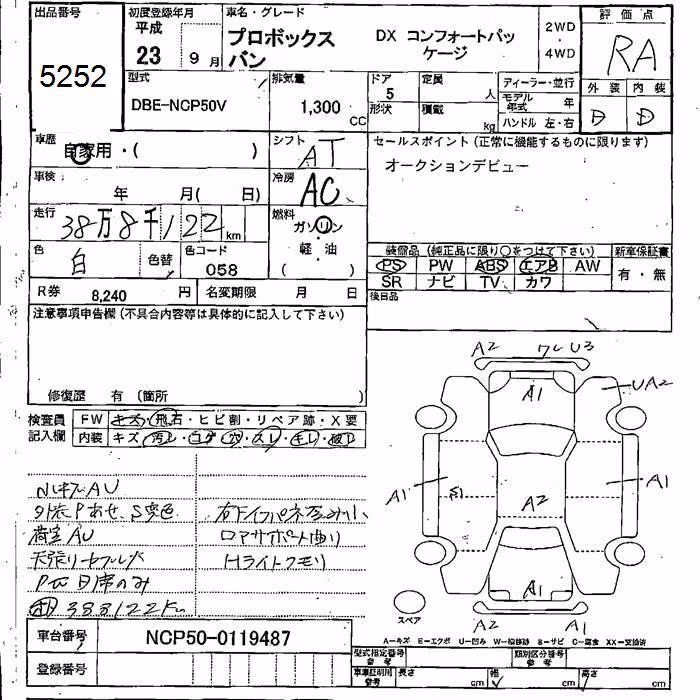 出品番号
5252
初度登録年月
平成
23 9 月
車名・グレード
プロボックス
バン
DX コンフォートパッ
ケージ
2WD
・
4WD
評 価 点
RA
外 装 内 装
D D
型式
DBE-NCP50V
排気量
1,300 CC
ドア
5
定員
人
形状
積載
kg
ディーラー・並行
モデル
年式 年
ハンドル 左・右
車歴
自家用・( )
シフト
AT
セールスポイント(正常に機能するものに限ります)
オークションデビュー
車検
年 月( 日)
冷房
AC
走行
38万8千122 km
燃料
ガソリン
軽・油
( )
色
白
色替
色コード
058
装備品(純正品に限り○をつけて下さい)
新車保証書
PS PW ABS エアB AW
SR ナビ TV カワ
有・無
R券 8,240 円
名変期限 月 日
後日品
注意事項申告欄(不具合内容等は具体的に記入して下さい)
修復歴 有 (箇所 )
検査員
記入欄
FW キズ・飛石・ヒビ割・リペア跡・X要
内装 キズ・汚レ・コゲ・穴・スレ・キレ・破レ
荷室AU
Hライトクモリ
388122Km
A2 ワレ U3
A1
UA2
A1
S1
A2
A1
A1
A2 A1
スペア
A-キズ E-エクボ U-凹み W-補修跡 S-サビ C-腐食 XX-交換済
車台番号
NCP50-0119487
登録番号
型式指定番号
参考
類別区分番号
参考
車庫証明用
参考
長さ cm 幅 cm 高さ cm